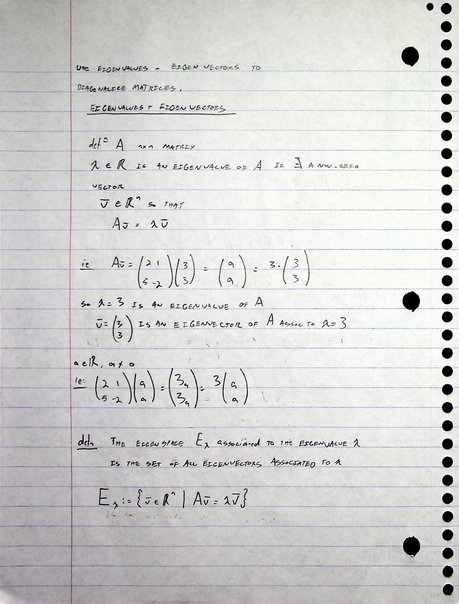 USE EIGENVALUES + EIGEN VECTORS TO
DIAGONALIZE MATRICES.
EIGENVALUES + EIGENVECTORS
defⁿ A n×n MATRIX
λ ∈ ℝ IS AN EIGENVALUE OF A IF ∃ A NON-ZERO
VECTOR
v̄ ∈ ℝⁿ SO THAT
Av̄ = λv̄
ie Av̄ = (2 1; 5 -2)(3; 3) = (9; 9) = 3·(3; 3)
SO λ = 3 IS AN EIGENVALUE OF A
v̄ = (3; 3) IS AN EIGENVECTOR OF A ASSOC TO λ = 3
a ∈ ℝ, a ≠ 0
ie: (2 1; 5 -2)(a; a) = (3a; 3a) = 3(a; a)
defn THE EIGENSPACE E_λ ASSOCIATED TO THE EIGENVALUE λ
IS THE SET OF ALL EIGENVECTORS ASSOCIATED TO λ
E_λ := {v̄ ∈ ℝⁿ | Av̄ = λv̄}